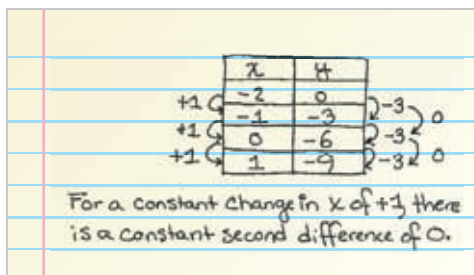 x y
-2 0
+1 -1 -3 -3 0
+1 0 -6 -3 0
+1 1 -9 -3
For a constant change in x of +1, there
is a constant second difference of 0.